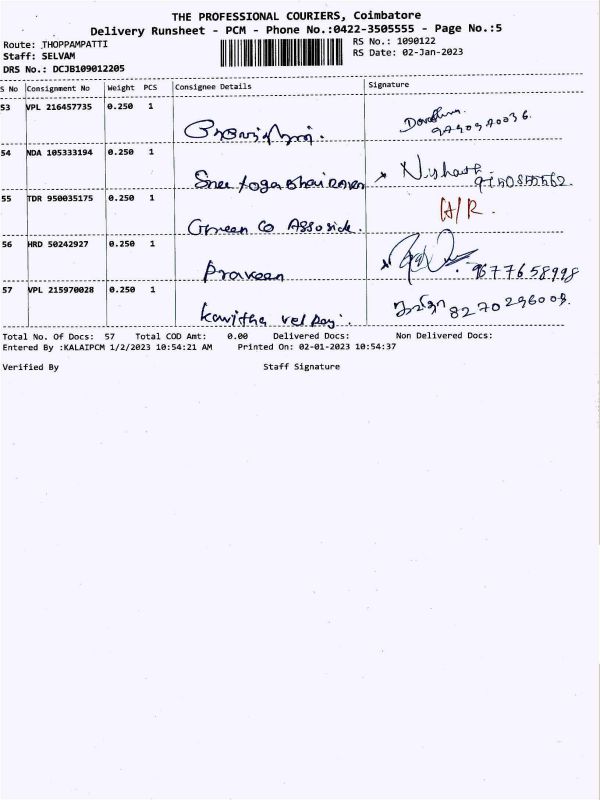 THE PROFESSIONAL COURIERS, Coimbatore
Delivery Runsheet - PCM - Phone No.:0422-3505555 - Page No.:5
Route: THOPPAMPATTI
RS No.: 1090122
Staff: SELVAM
RS Date: 02-Jan-2023
DRS No.: DCJB109012205
S No Consignment No Weight PCS Consignee Details Signature
53 VPL 216457735 0.250 1
54 NDA 105333194 0.250 1
Sree yoga bhairavar
55 TDR 950035175 0.250 1 H/R.
Green Co Assosiate.
56 HRD 50242927 0.250 1
Praveen 9677658998
57 VPL 215970028 0.250 1
8270296009.
Kavitha vel
Total No. Of Docs: 57 Total COD Amt: 0.00 Delivered Docs: Non Delivered Docs:
Entered By :KALAIPCM 1/2/2023 10:54:21 AM Printed On: 02-01-2023 10:54:37
Verified By Staff Signature